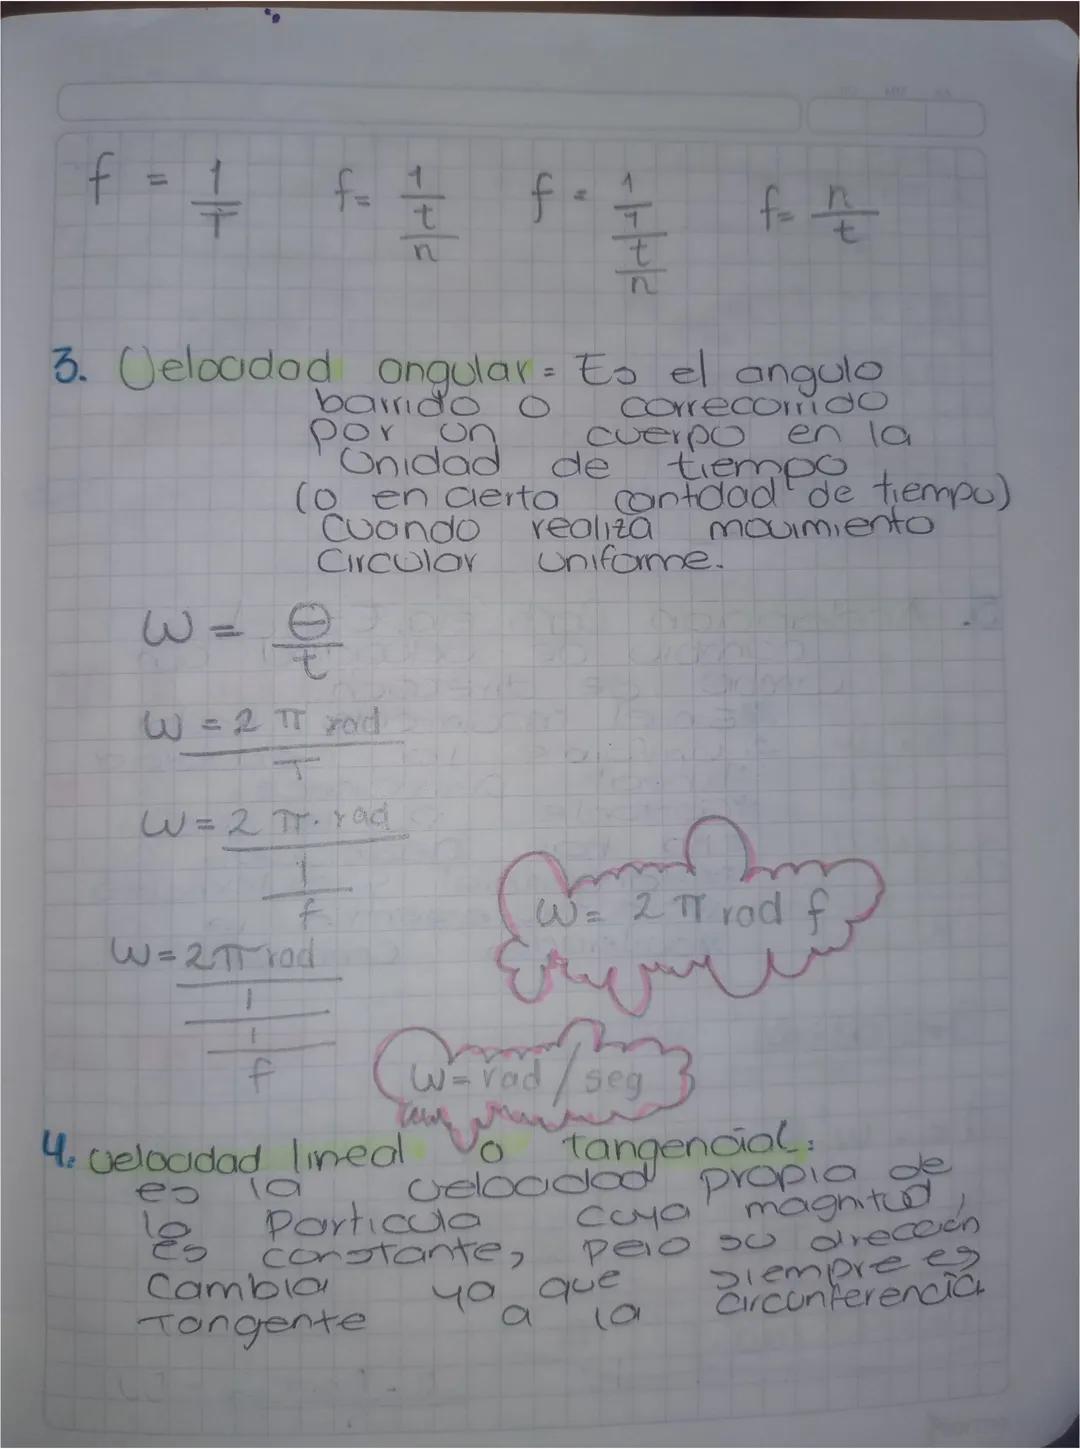 f = 1/T   f= 1/t/n   f = 1/1/t/n   f= n/t
3. Velocidad angular = Es el angulo
barrido o correcorrido
por un cuerpo en la
Unidad de tiempo
(o en cierto cantdad de tiempo)
Cuando realiza movimiento
Circular Uniforme.
ω = θ/t
ω = 2 π rad/T
ω = 2 π. rad/1/f
ω = 2 π rad f
ω = 2 π rad/1/1/f
ω = rad / seg
4. velocidad lineal o tangencial:
es la velocidad propia de
la particula cuya magnitud,
es constante, pero su dirección
Cambia ya que siempre es
Tangente a la circunferencia